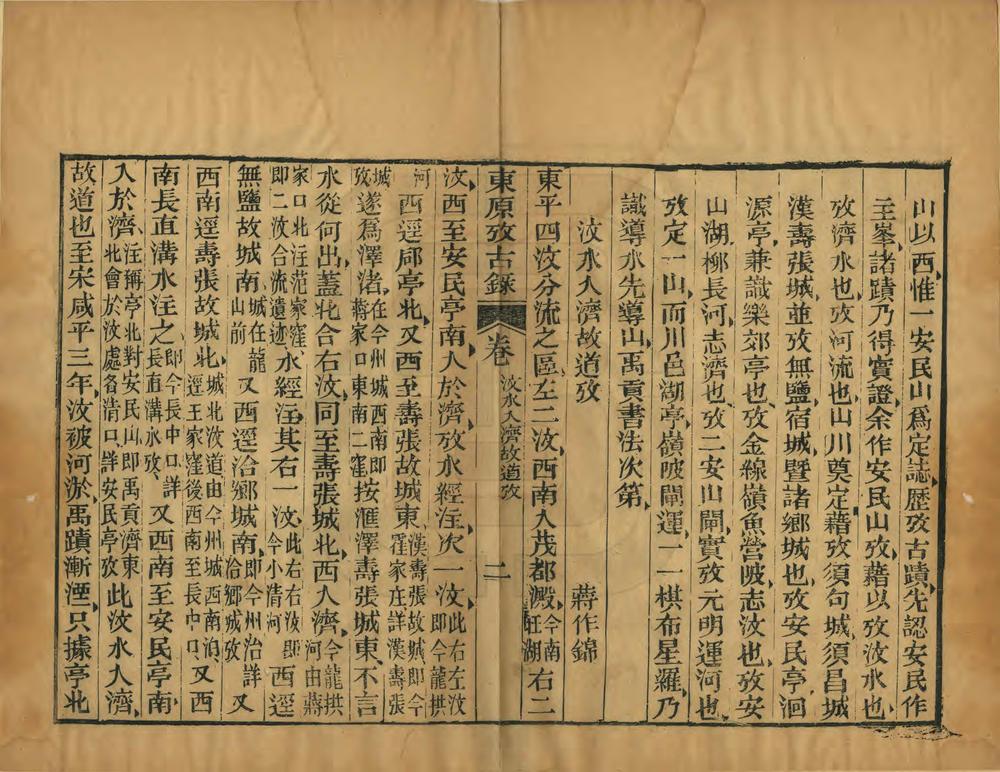 山以西惟一安民山爲定誌歷攷古蹟先認安民作
主峯諸蹟乃得實證余作安民山攷藉以攷汶水也
攷濟水也攷河流也山川奠定藉攷須句城須昌城
漢壽張城並攷無鹽宿城暨諸鄉城也攷安民亭洄
源亭兼識樂郊亭也攷金線嶺魚營陂志汶也攷安
山湖柳長河志濟也攷二安山閘實攷元明運河也
攷定一山而川邑湖亭嶺陂閘運一一棋布星羅乃
識導水先導山禹貢書法次第
汶水入濟故道攷 蔣作錦
東平四汶分流之區左二汶西南入茂都澱今南旺湖右二
東原攷古錄 卷 汶水入濟故道攷 二
汶西至安民亭南入於濟攷水經注次一汶此右左汶即今龍拱河
西逕郈亭北又西至壽張故城東漢壽張故城即今霍家庄詳漢壽張城攷
遂爲澤渚在今州城西南即蔣家口東南二窪按滙澤壽張城東不言
水從何出蓋北合右汶同至壽張城北西入濟今龍拱河由蔣家口北注范家窪
即二汶合流遺迹水經注其右一汶此右右汶即今小清河西逕
無鹽故城南城在龍山前又西逕洽鄉城南即今州治詳洽鄉城攷又
西南逕壽張故城北城北汶道由今州城西南泊逕王家窪後西南至長中口又西
南長直溝水注之即今長中口詳長直溝水攷又西南至安民亭南
入於濟注稱亭北對安民山即禹貢濟東北會於汶處名清口詳安民亭攷此汶水入濟
故道也至宋咸平三年汶被河淤禹蹟漸湮只據亭北